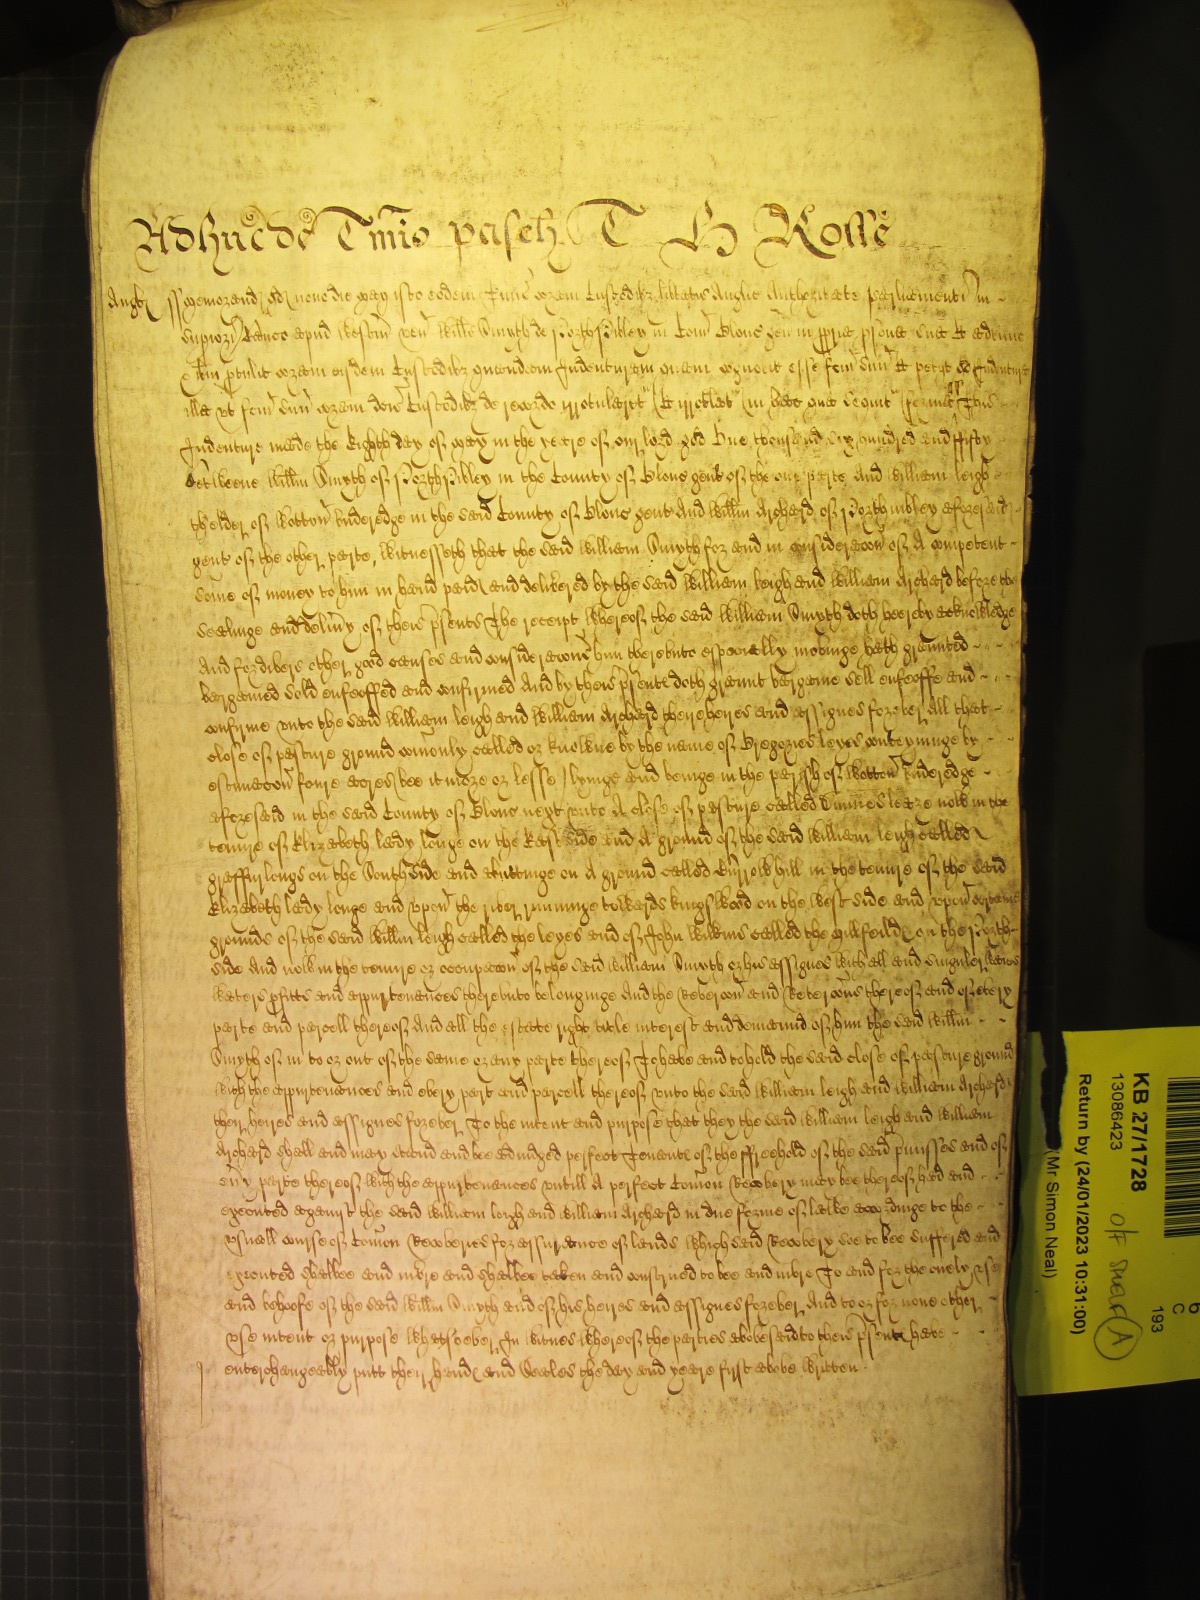 Adhuc de Tmio pasch T H Rolle
Angl ss Memorand qd nono die May isto eodem Termio coram Custodibz libtatis Anglie Authoritate Parliamenti in
Superiori Banco apud Westm ven Willus Smyth de North Nibley in Com Glouc gen in ppria psona sua Et adtunc
& ibm ptulit coram eisdem Custodibz quandam Indenturam quam cognovit esse fcm suu Et petit qd Indentura
illa ut fcm suu coram dcis Custodibz de recordo irrotularet Et irrotlat in hec que sequunt verba ss This
Indenture made the Eighth day of May in the yeare of our lord god One thousand six hundred and fifty
Betweene Willm Smyth of North Nibley in the County of Glouc gent of the one parte And William Leigh
th elder of Wotton Underedge in the said County of Glouc gent And Willm Archard of North Nibley aforesaid
gent of the other parte, Witnesseth that the said William Smyth for and in consideracon of A competent
some of money to him in hand paid and delivered by the said William Leigh and William Archard before the
sealinge and delivy of theis psents The receipt whereof the said William Smyth doth hereby acknowledge
And for divers other good causes and consideracons him thereunto especially movinge hath graunted
bargained sold enfeoffed and confirmed And by theis psents doth graunt bargaine sell enfeoffe and
confirme unto the said William Leigh and William Archard their heires and assignes forever All that
close of pasture ground comonly called or knowne by the name of Gregories Leyes conteyninge by
estimacon foure acres (bee it more or lesse) lyinge and beinge in the parish of Wotton Underedge
aforesaid in the said County of Glouc next unto A close of pasture called Sinnies leaze now in the
tenure of Elizabeth lady Longe on the East side and A ground of the said William Leigh called
graffurlonge on the South side and abuttinge on A ground called Burrow hill in the tenure of the said
Elizabeth lady Longe and upon the river runninge towards Kingswood on the West side and upon certaine
grounds of the said Willm Leigh called the leyes and of John Wilkins called the Millfeild on the North
side And now in the tenure or occupacon of the said William Smyth or his assignes with all and singuler waies
waters pfitts and appurtenances thereunto belonginge And the Revercon and Revercons thereof and of every
parte and parcell thereof And all the estate right title interest and demaund of him the said Willm
Smyth of in to or out of the same or any parte thereof To have and to hold the said close of pasture ground
with the appurtenances and every part and parcell thereof unto the said William Leigh and William Archard
their heires and assignes forever To the intent and purpose that they the said William Leigh and William
Archard shall and may stand and bee adiudged perfect Tenants of the ffreehold of the said pmisses and of
evy parte thereof with the appurtenances untill A perfect Comon Recovery may bee thereof had and
executed against the said William Leigh and William Archard in due forme of lawe accordinge to the
usuall course of Comon Recoveries for assurance of lands which said Recovery soe to bee suffered and
executed shalbee and inure and shalbee taken and construed to bee and inure To and for the onely use
and behoofe of the said Willm Smyth and of his heires and assignes forever And to or for none other
use intent or purpose whatsoever, In witnes whereof the parties abovesaid to theis psents have
enterchangeably putt their hands and Seales the day and yeare first above written
KB 27/1728
13086423
Return by (24/01/2023 10:31:00)
(Mr Simon Neal)
193
C
6
A